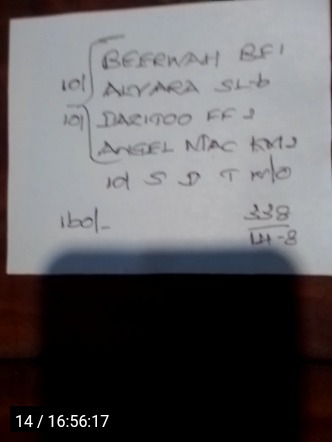 10/ BEERWAH BF1
ALVARA SL-6
10/ DARITOO FF2
ANGEL MAC KM2
10/ S D T m/o
160/-
338
14-8
14 / 16:56:17